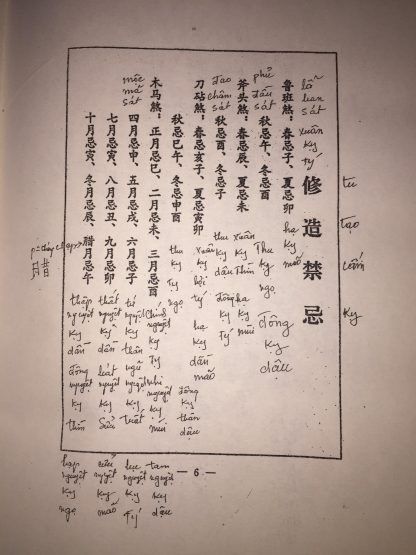 修造禁忌
tu
tạo
cấm
kỵ
鲁班煞：春忌子、夏忌卯
lỗ
ban
sát
xuân
kỵ
tý
hạ
kỵ
mão
秋忌午、冬忌酉
Thu
kỵ
ngọ
đông
kỵ
dậu
斧头煞：春忌辰、夏忌未
phủ
đầu
sát
xuân
kỵ
Thìn
hạ
kỵ
mùi
秋忌酉、冬忌子
thu
kỵ
dậu
đông
kỵ
Tý
刀砧煞：春忌亥子、夏忌寅卯
đao
châm
sát
xuân
kỵ
hợi
tý
hạ
kỵ
dần
mão
秋忌巳午 冬忌申酉
thu
kỵ
Tỵ
ngọ
đông
kỵ
thân
dậu
木马煞：正月忌巳、二月忌未、三月忌酉
mộc
mã
sát
Chính
nguyệt
kỵ
Tỵ
nhị
nguyệt
kỵ
mùi
tam
nguyệt
kỵ
dậu
四月忌申、五月忌戌、六月忌子
tứ
nguyệt
kỵ
thân
ngũ
nguyệt
kỵ
tuất
lục
nguyệt
kỵ
Tý
七月忌寅、八月忌丑、九月忌卯
thất
nguyệt
kỵ
dần
bát
nguyệt
kỵ
Sửu
cửu
nguyệt
kỵ
mão
十月忌寅、冬月忌辰、腊月忌午
thập
nguyệt
kỵ
dần
đông
nguyệt
kỵ
thìn
lạp
nguyệt
kỵ
ngọ
— 6 —